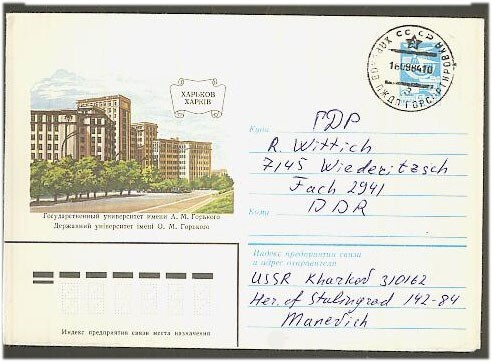 ХАРЬКОВ
ХАРКІВ
Государственный университет имени А. М. Горького
Державний університет імені О. М. Горького
СССР
Куда
ГДР
R. Wittich
7145 Wiederitzsch
Fach 2941
Кому
DDR
Индекс предприятия связи
и адрес отправителя
USSR Kharkov 310162
Her. of Stalingrad 142-84
Manevich
Индекс предприятия связи места назначения